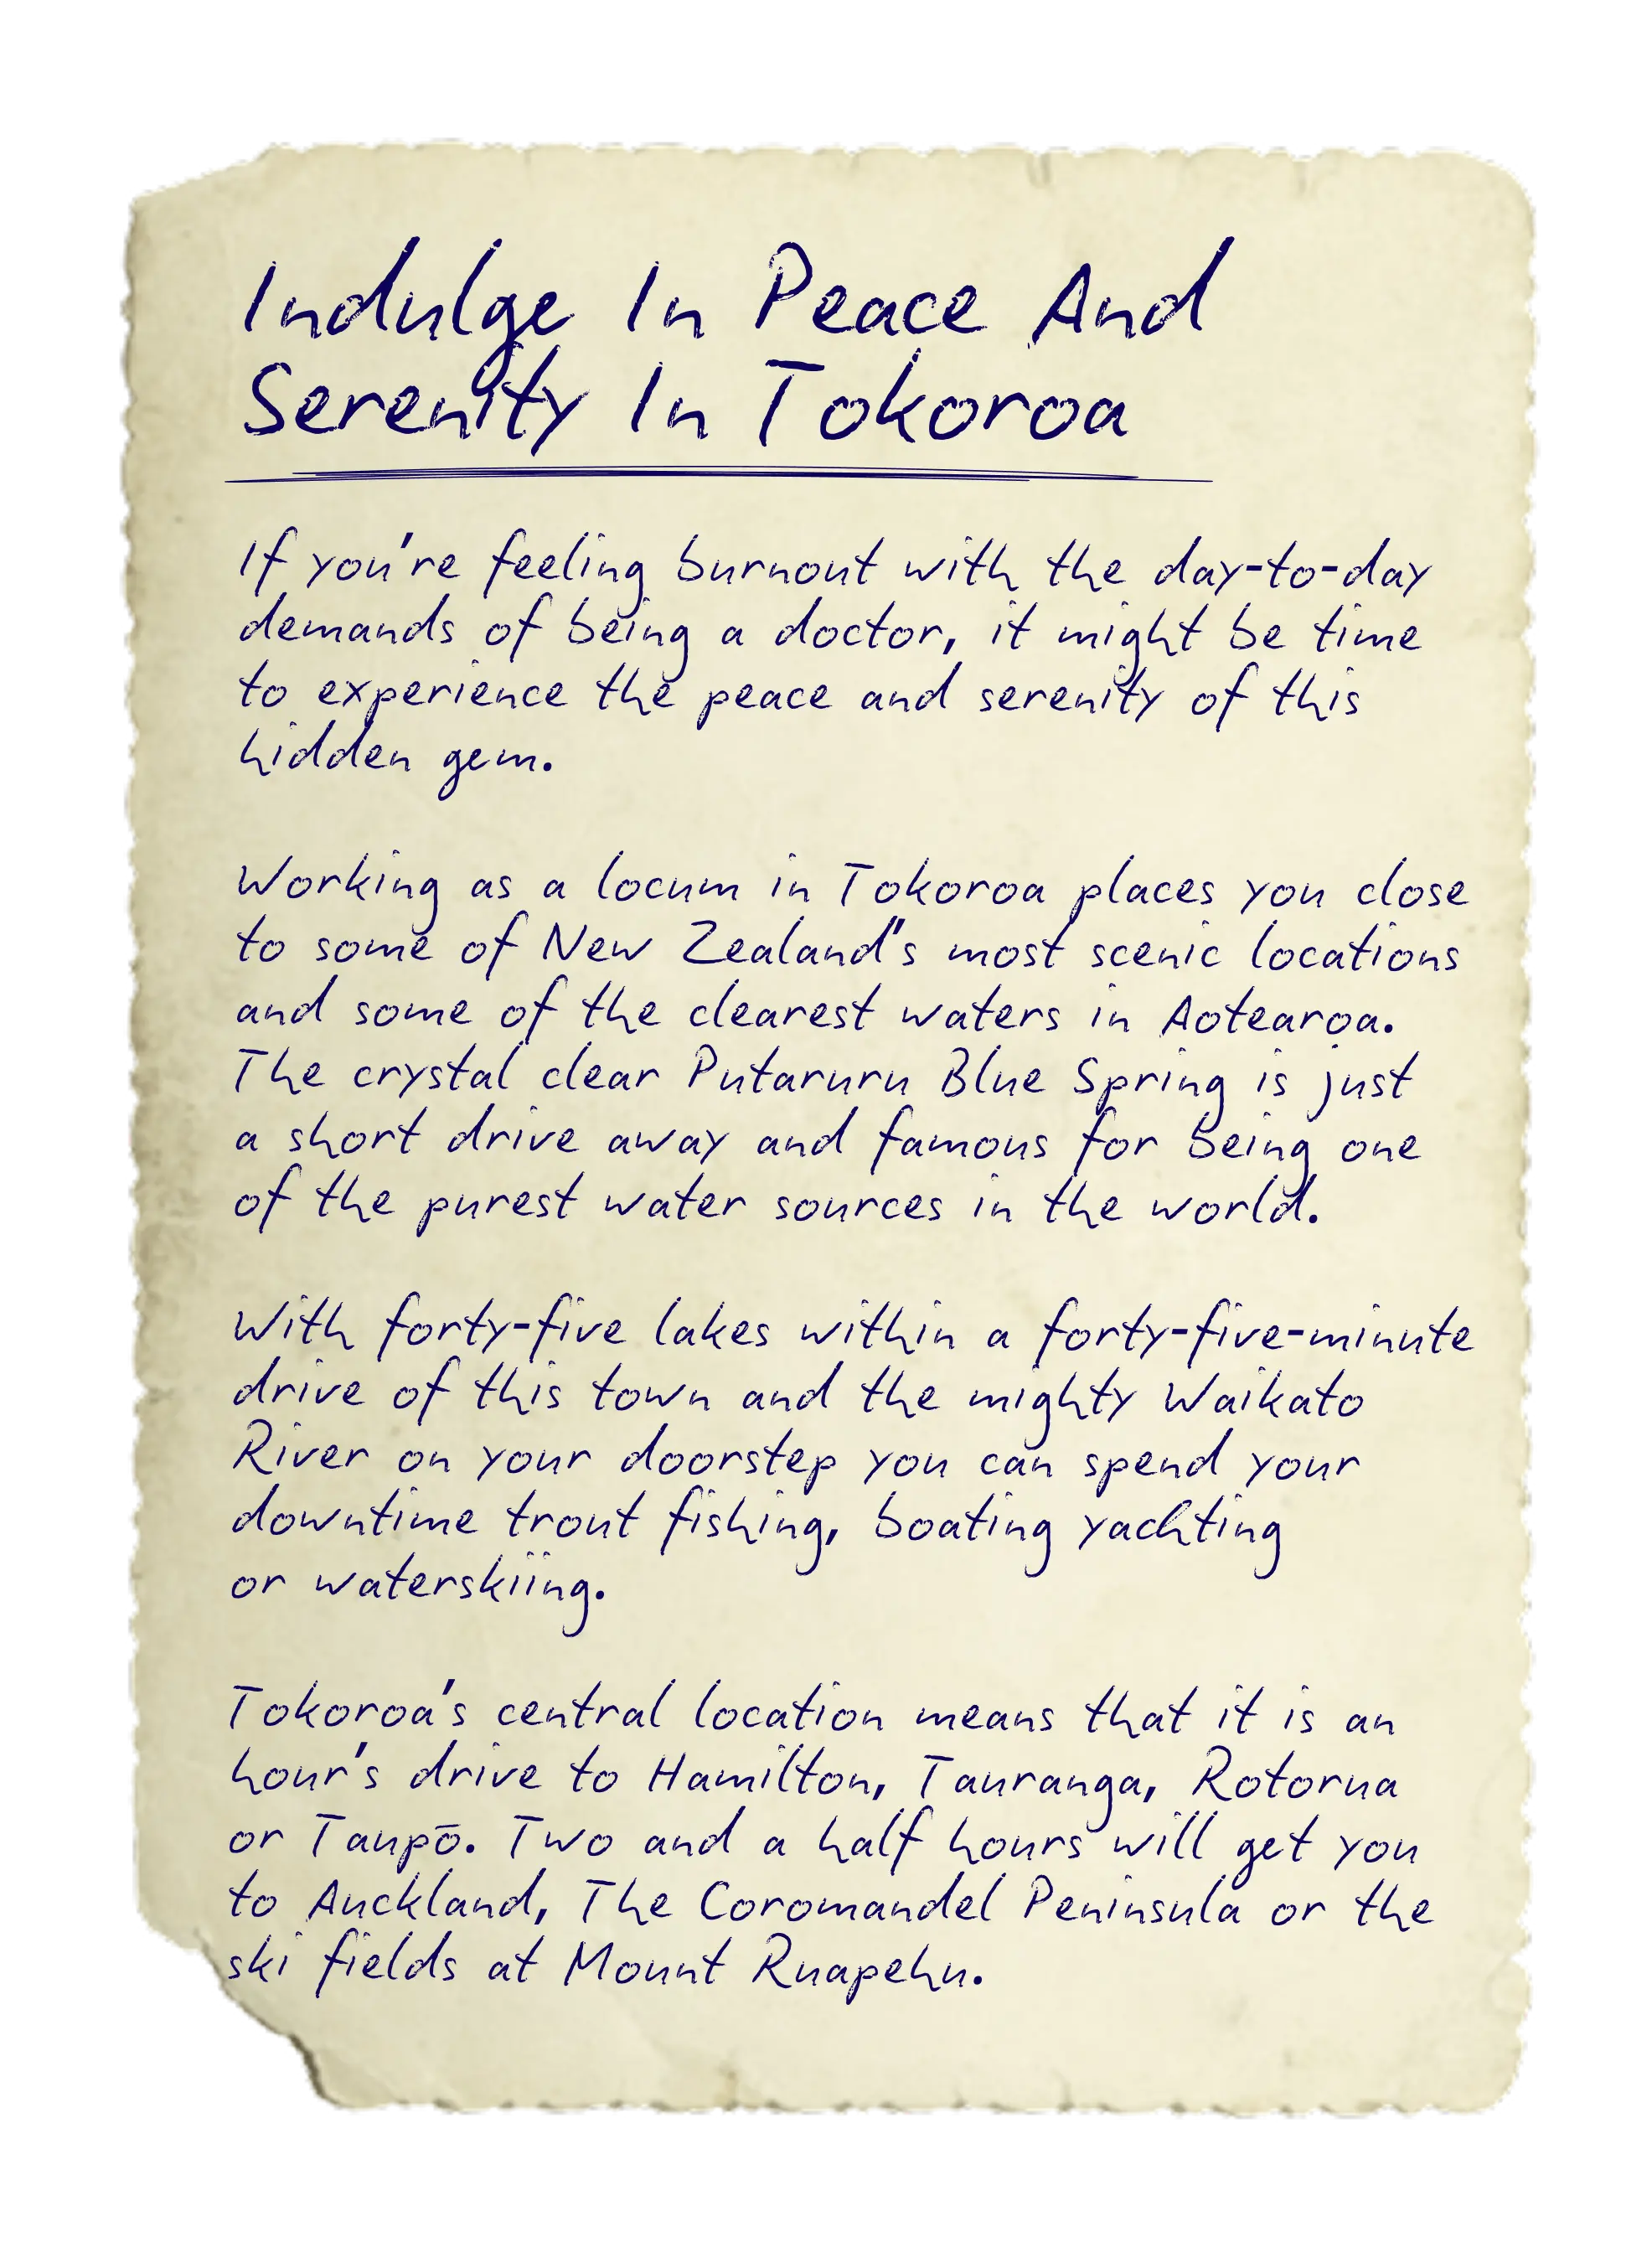 Indulge In Peace And
Serenity In Tokoroa
If you're feeling burnout with the day-to-day
demands of being a doctor, it might be time
to experience the peace and serenity of this
hidden gem.
Working as a locum in Tokoroa places you close
to some of New Zealand's most scenic locations
and some of the clearest waters in Aotearoa.
The crystal clear Putaruru Blue Spring is just
a short drive away and famous for being one
of the purest water sources in the world.
With forty-five lakes within a forty-five-minute
drive of this town and the mighty Waikato
River on your doorstep you can spend your
downtime trout fishing, boating yachting
or waterskiing.
Tokoroa's central location means that it is an
hour's drive to Hamilton, Tauranga, Rotorua
or Taupō. Two and a half hours will get you
to Auckland, The Coromandel Peninsula or the
ski fields at Mount Ruapehu.